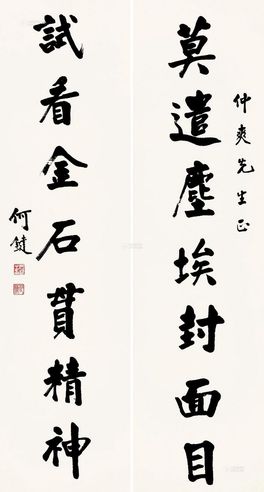 仲爽先生正
莫遣塵埃封面目
試看金石貫精神
何鍵